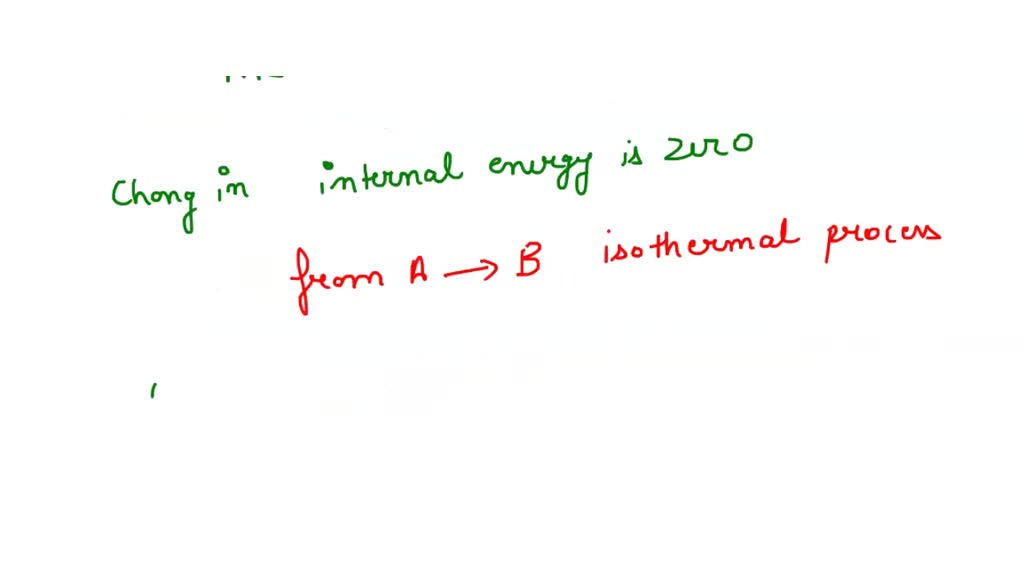 Chong in internal energy is zero
from A → B isothermal process